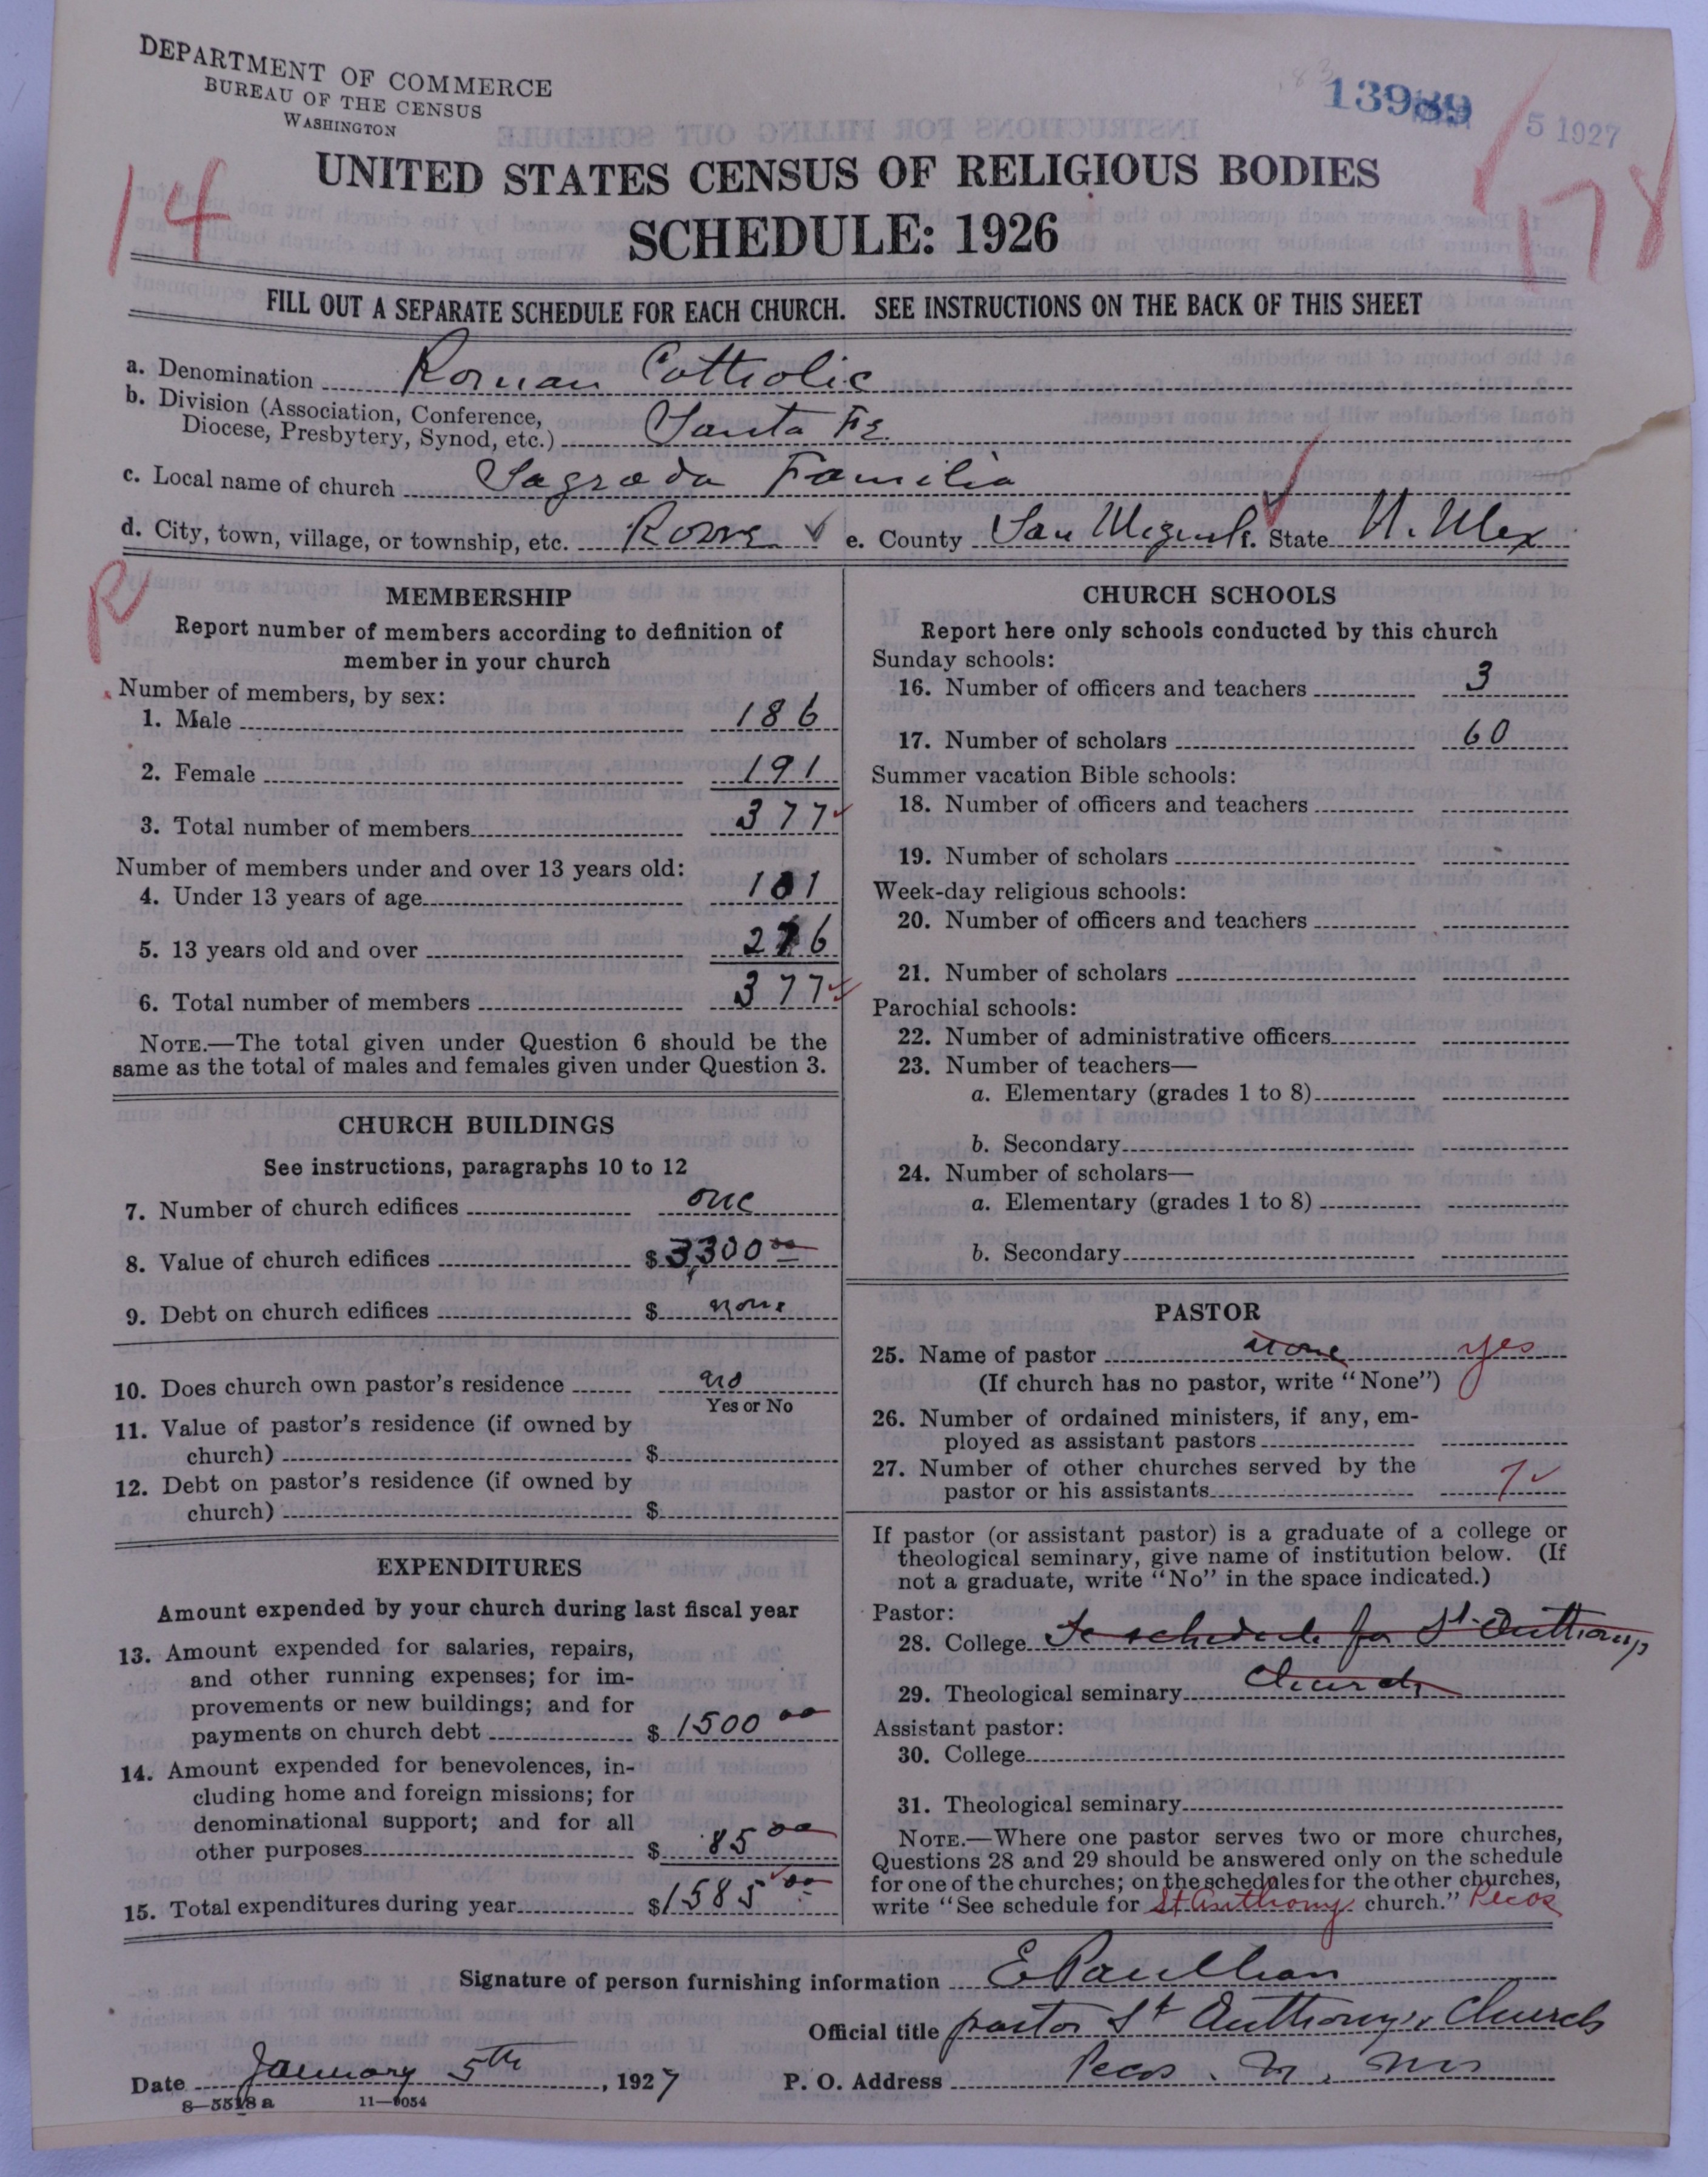 DEPARTMENT OF COMMERCE
BUREAU OF THE CENSUS
WASHINGTON
13989
5 1927
14
178
UNITED STATES CENSUS OF RELIGIOUS BODIES
SCHEDULE: 1926
FILL OUT A SEPARATE SCHEDULE FOR EACH CHURCH. SEE INSTRUCTIONS ON THE BACK OF THIS SHEET
a. Denomination Roman Catholic
b. Division (Association, Conference,
Diocese, Presbytery, Synod, etc.) Santa Fe
c. Local name of church Sagrada Familia
d. City, town, village, or township, etc. Rowe ✓ e. County San Miguel f. State N. Mex
R
MEMBERSHIP
Report number of members according to definition of
member in your church
Number of members, by sex:
1. Male 186
2. Female 191
3. Total number of members 377
Number of members under and over 13 years old:
4. Under 13 years of age 101
5. 13 years old and over 276
6. Total number of members 377
NOTE.—The total given under Question 6 should be the
same as the total of males and females given under Question 3.
CHURCH BUILDINGS
See instructions, paragraphs 10 to 12
7. Number of church edifices one
8. Value of church edifices $3,300 00
9. Debt on church edifices $ none
10. Does church own pastor's residence no
Yes or No
11. Value of pastor's residence (if owned by
church) $
12. Debt on pastor's residence (if owned by
church) $
EXPENDITURES
Amount expended by your church during last fiscal year
13. Amount expended for salaries, repairs,
and other running expenses; for im-
provements or new buildings; and for
payments on church debt $ 1500 00
14. Amount expended for benevolences, in-
cluding home and foreign missions; for
denominational support; and for all
other purposes $ 85 00
15. Total expenditures during year $1585 00
CHURCH SCHOOLS
Report here only schools conducted by this church
Sunday schools:
16. Number of officers and teachers 3
17. Number of scholars 60
Summer vacation Bible schools:
18. Number of officers and teachers
19. Number of scholars
Week-day religious schools:
20. Number of officers and teachers
21. Number of scholars
Parochial schools:
22. Number of administrative officers
23. Number of teachers—
a. Elementary (grades 1 to 8)
b. Secondary
24. Number of scholars—
a. Elementary (grades 1 to 8)
b. Secondary
PASTOR
25. Name of pastor none yes
(If church has no pastor, write "None")
26. Number of ordained ministers, if any, em-
ployed as assistant pastors
27. Number of other churches served by the
pastor or his assistants 7
If pastor (or assistant pastor) is a graduate of a college or
theological seminary, give name of institution below. (If
not a graduate, write "No" in the space indicated.)
Pastor:
28. College schedule for St. Anthony
29. Theological seminary Church
Assistant pastor:
30. College
31. Theological seminary
NOTE.—Where one pastor serves two or more churches,
Questions 28 and 29 should be answered only on the schedule
for one of the churches; on the schedules for the other churches,
write "See schedule for St Anthony church." Pecos
Signature of person furnishing information E Paulhan
Official title pastor St Anthony's Church
Date January 5th, 1927 P. O. Address Pecos N. Mex
8—5518 a 11—9054